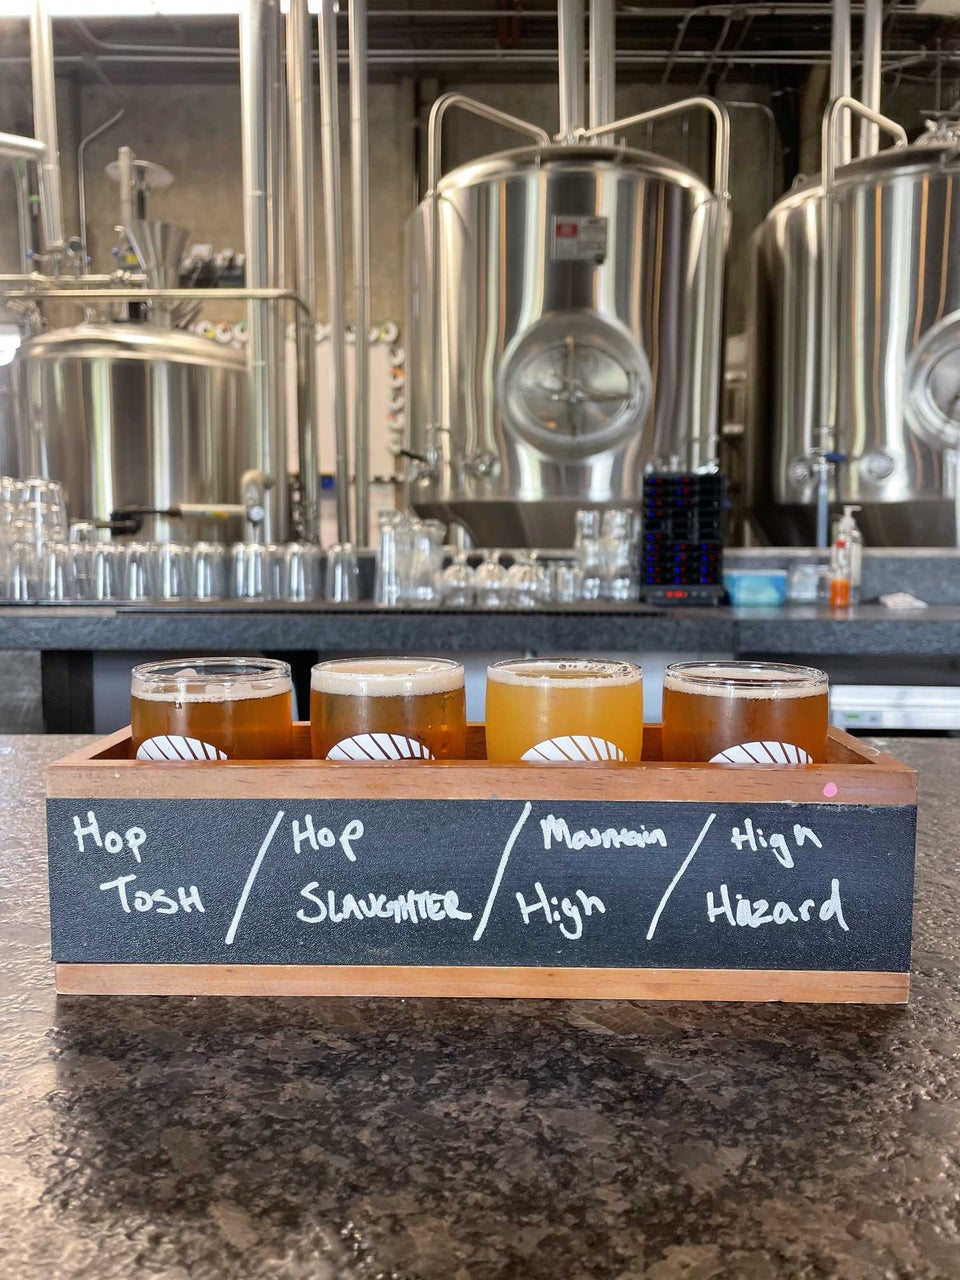 Hop
Tosh
Hop
SLAUGHTER
Mountain
High
High
Hazard